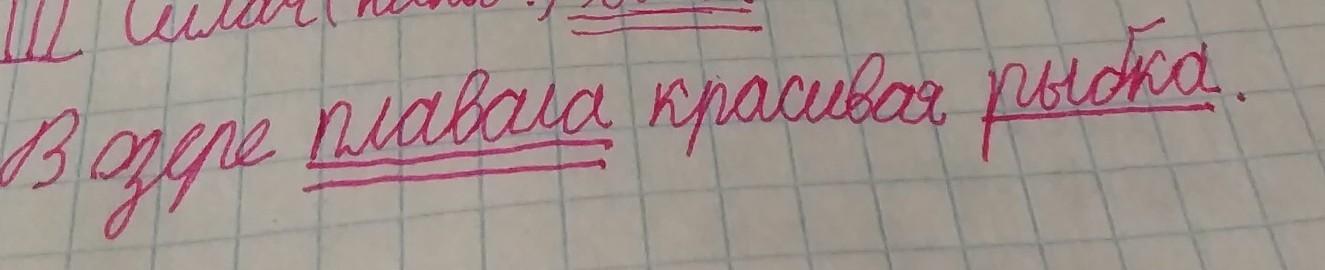 В озере плавала красивая рыбка.